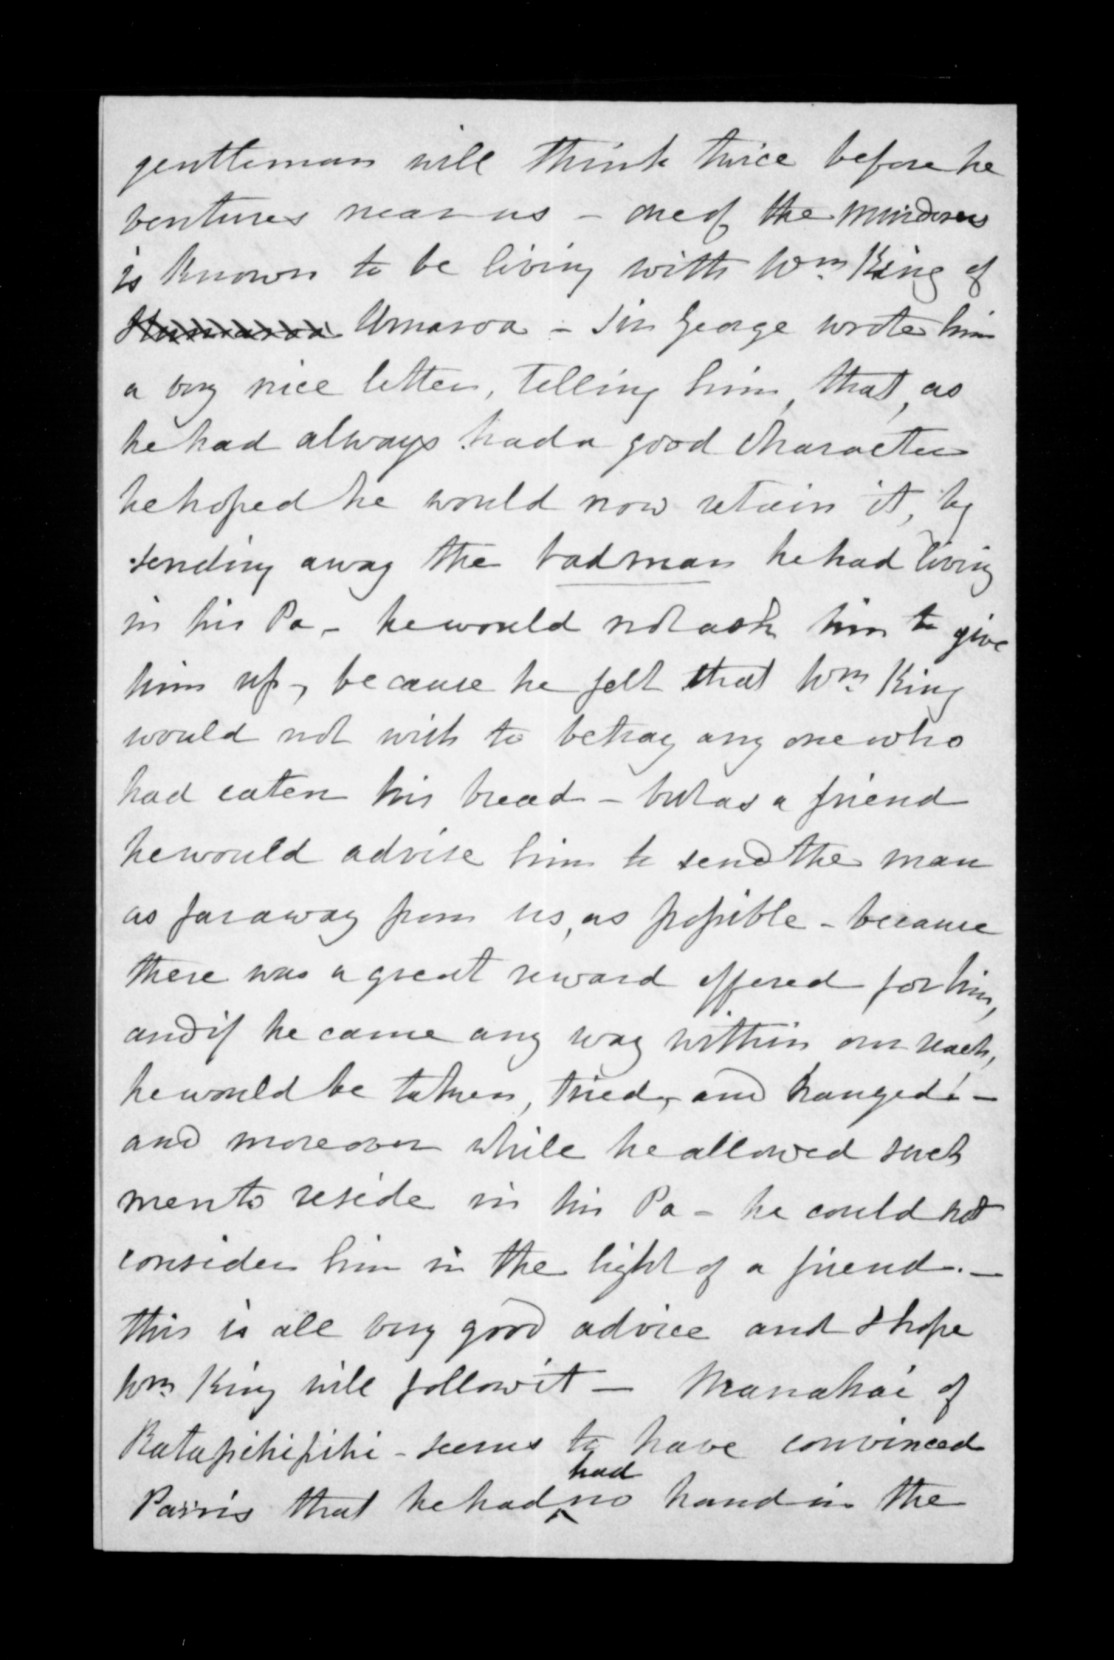 gentleman will think twice before he
ventures near us - one of the murderers
is known to be living with Wm King of
Umaroa - Sir George wrote him
a very nice letter, telling him, that, as
he had always had a good character
he hoped he would now retain it, by
sending away the bad man he had living
in his Pa - he would not ask him to give
him up, because he felt that Wm King
would not wish to betray any one who
had eaten his bread - but as a friend
he would advise him to send the man
as far away from us, as possible - because
there was a great reward offered for him,
and if he came any way within our reach,
he would be taken, tried, and hanged! -
and moreover while he allowed such
men to reside in his Pa - he could not
consider him in the light of a friend. -
this is all very good advice and I hope
Wm King will follow it - Manahai of
Ratapihipihi - seems to have convinced
Parris that he had had no hand in the